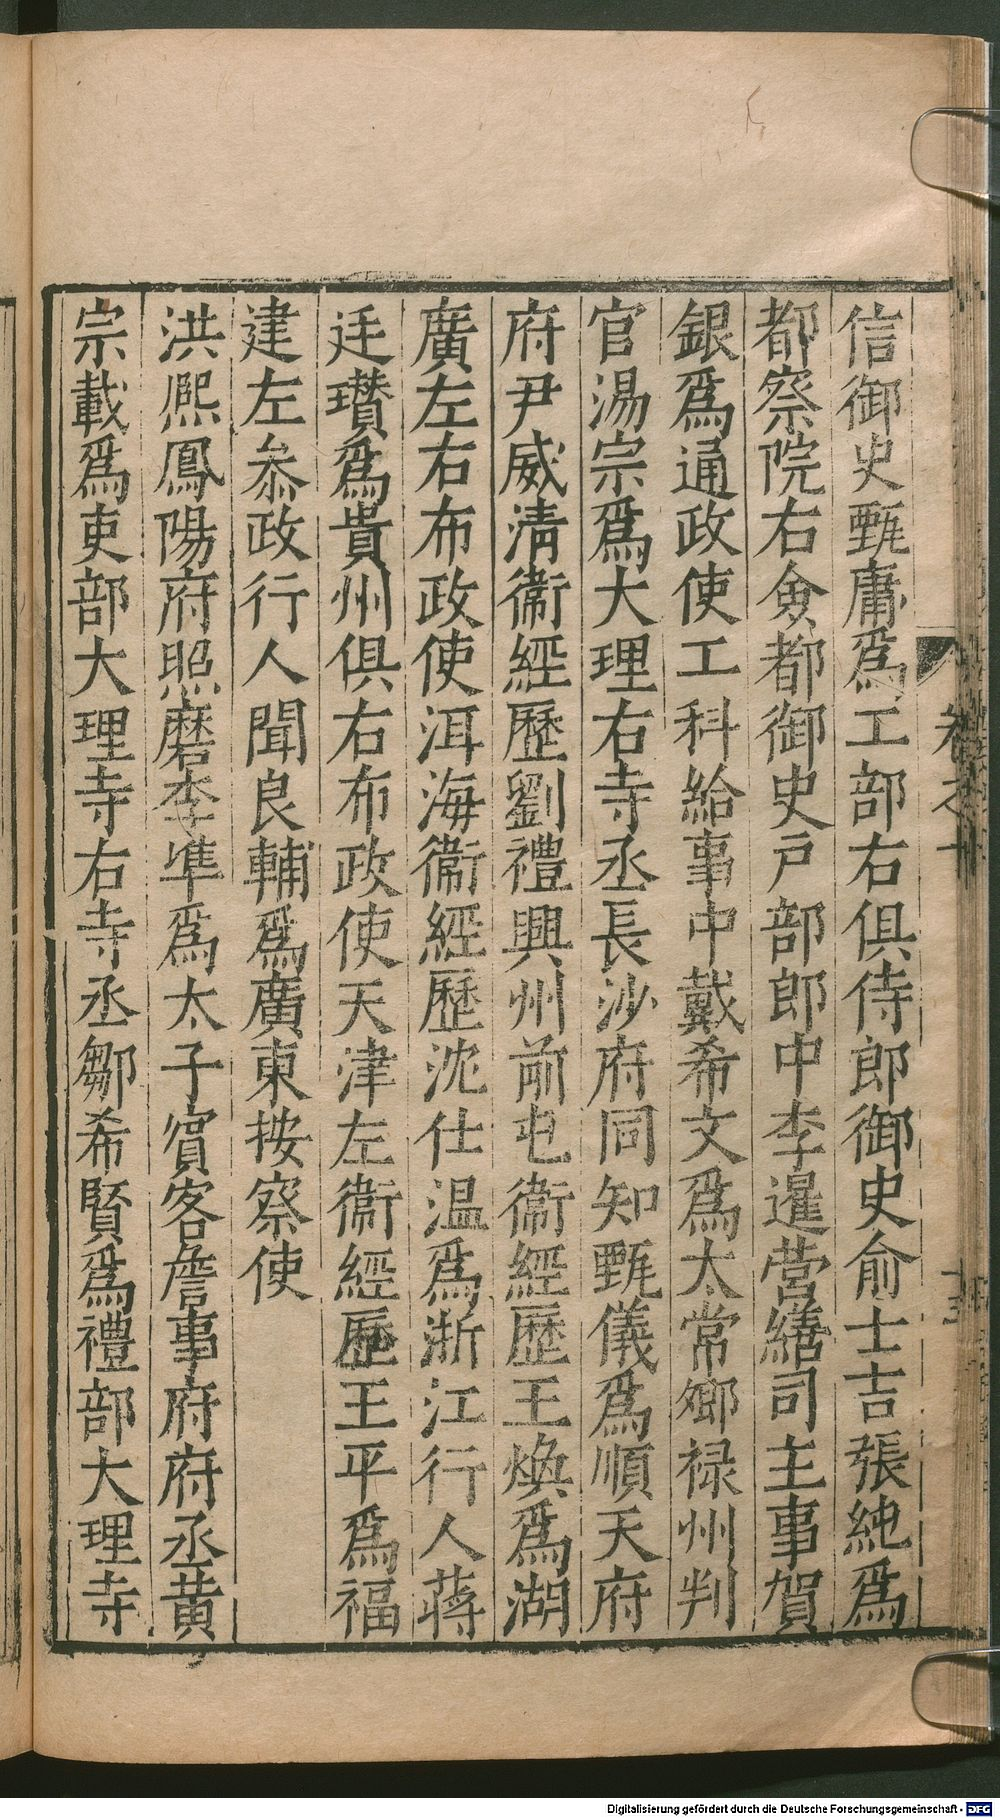 信御史甄庸爲工部右俱侍郎御史俞士吉張純爲
都察院右僉都御史戶部郎中李暹營繕司主事賀
銀爲通政使工科給事中戴希文爲太常卿祿州判
官湯宗爲大理右寺丞長沙府同知甄儀爲順天府
府尹威清衞經歷劉禮興州前屯衞經歷王煥爲湖
廣左右布政使洱海衞經歷沈仕温爲浙江行人蔣
廷瓚爲貴州俱右布政使天津左衞經歷王平爲福
建左叅政行人聞良輔爲廣東按察使
洪熈鳳陽府照磨李準爲太子賓客詹事府府丞黄
宗載爲吏部大理寺右寺丞鄒希賢爲禮部大理寺
卷之十
Digitalisierung gefördert durch die Deutsche Forschungsgemeinschaft - DFG